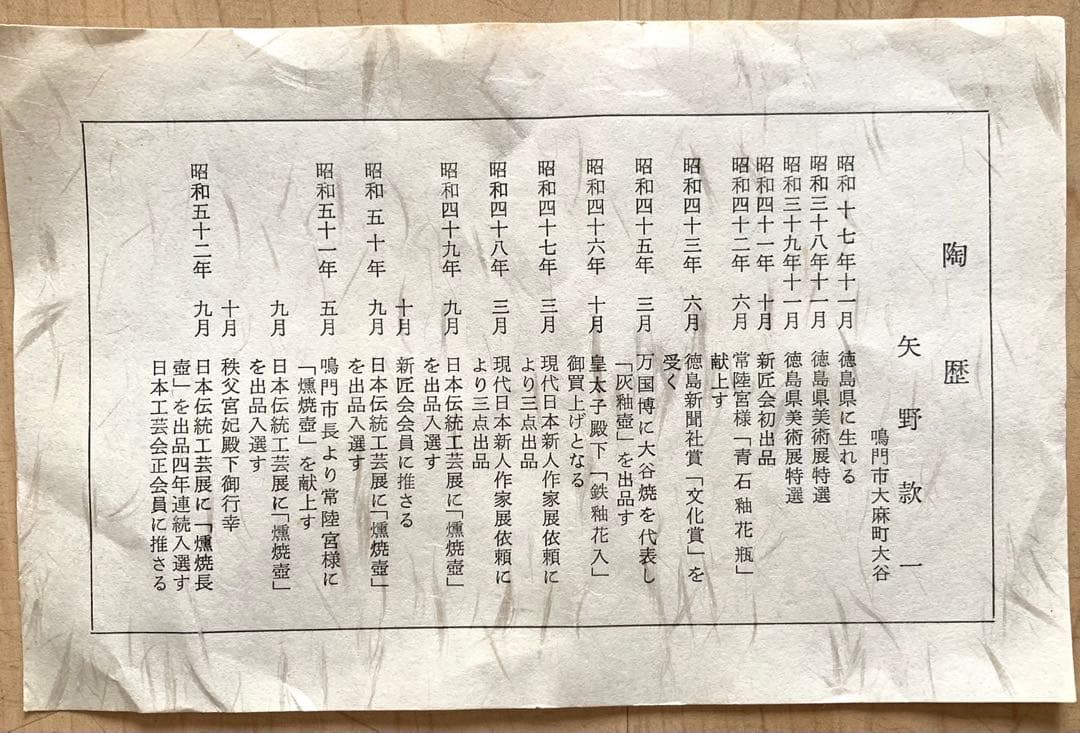 陶歴
矢野款一
鳴門市大麻町大谷
昭和十七年十一月 徳島県に生れる
昭和三十八年十一月 徳島県美術展特選
昭和三十九年十一月 徳島県美術展特選
昭和四十一年 十月 新匠会初出品
昭和四十二年 六月 常陸宮様「青石釉花瓶」
献上す
昭和四十三年 六月 徳島新聞社賞「文化賞」を
受く
昭和四十五年 三月 万国博に大谷焼を代表し
「灰釉壺」を出品す
昭和四十六年 十月 皇太子殿下「鉄釉花入」
御買上げとなる
昭和四十七年 三月 現代日本新人作家展依頼に
より三点出品
昭和四十八年 三月 現代日本新人作家展依頼に
より三点出品
昭和四十九年 九月 日本伝統工芸展に「燻焼壺」
を出品入選す
十月 新匠会会員に推さる
昭和五十年 九月 日本伝統工芸展に「燻焼壺」
を出品入選す
昭和五十一年 五月 鳴門市長より常陸宮様に
「燻焼壺」を献上す
九月 日本伝統工芸展に「燻焼壺」
を出品入選す
十月 秩父宮妃殿下御行幸
昭和五十二年 九月 日本伝統工芸展に「燻焼長
壺」を出品四年連続入選す
日本工芸会正会員に推さる